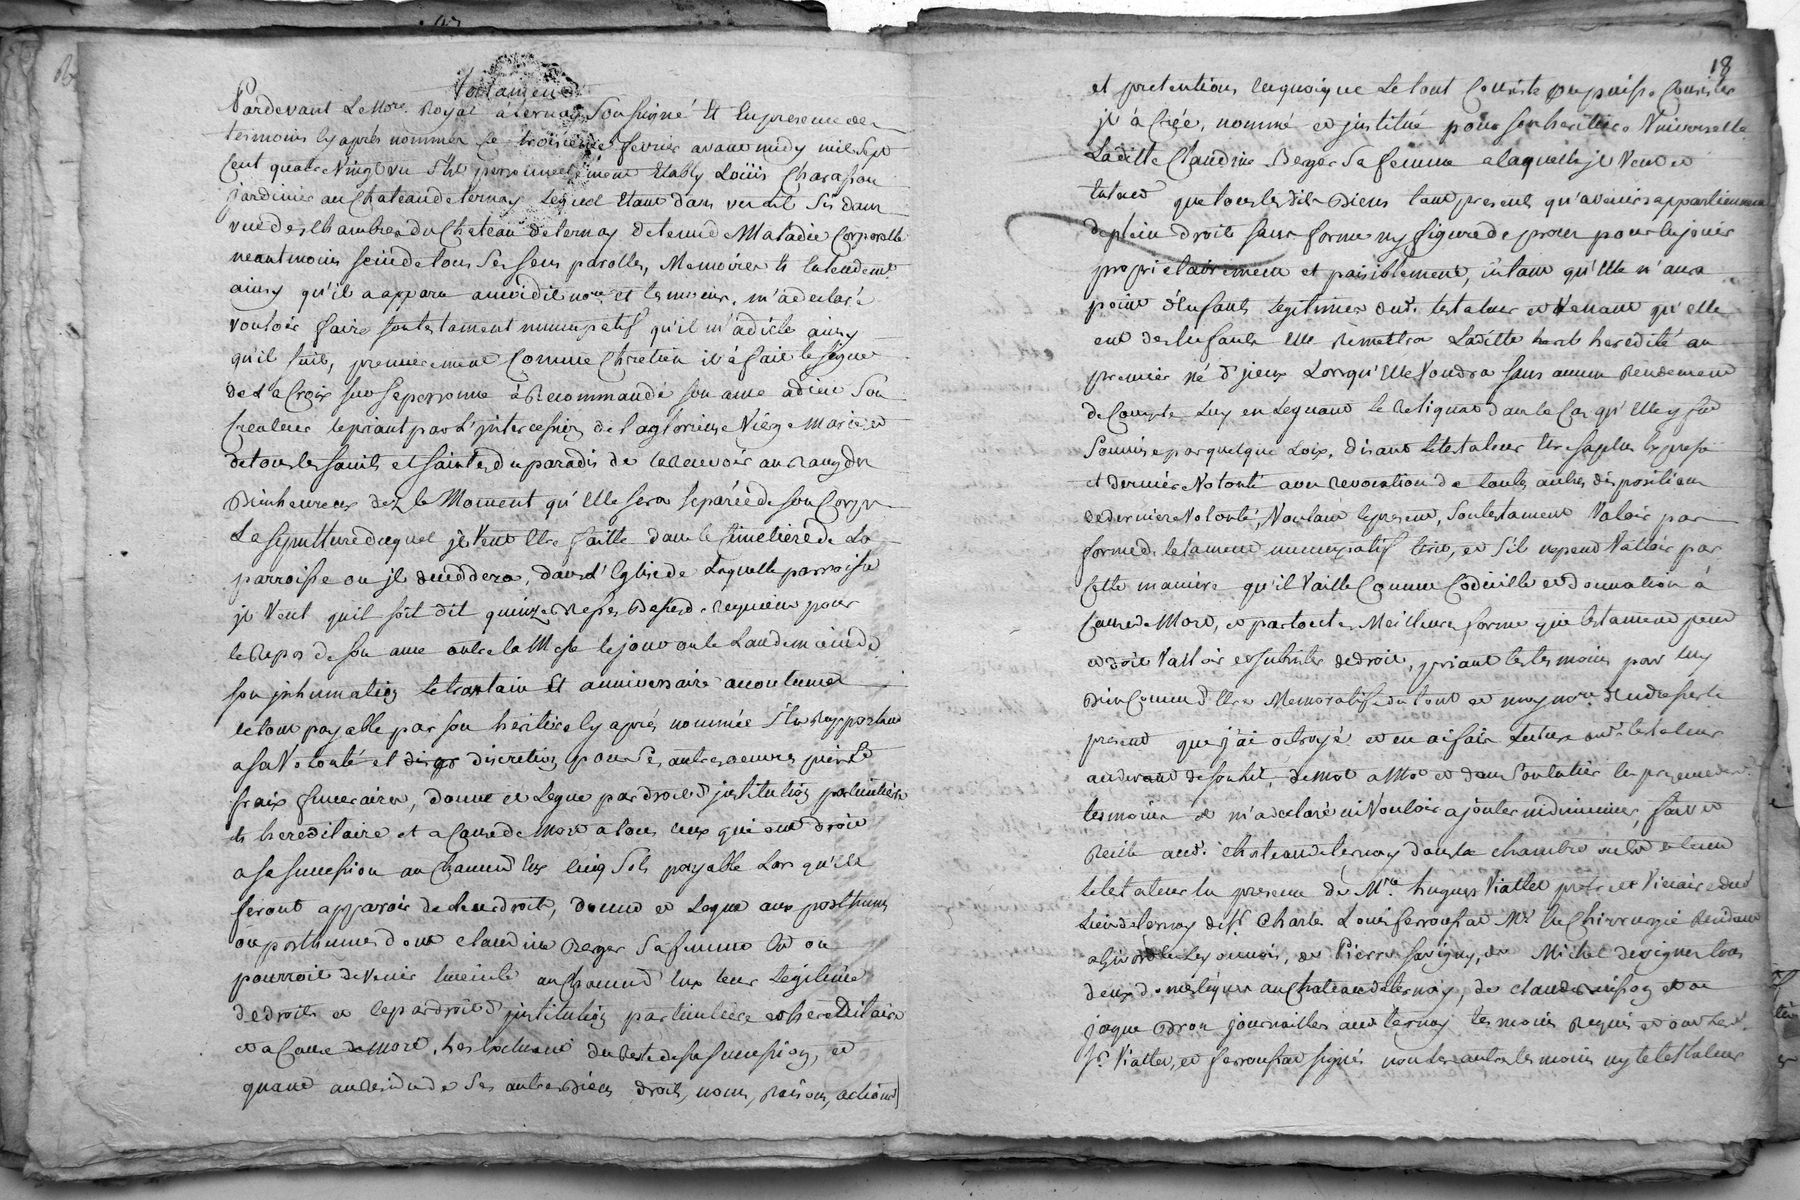 Testament
Pardevant Le Nore. Royal à ternay Soussigné Et En presence des
temoins Cy après nommés Le troisieme fevrier avant midy mil Sept
Cent quatre Vingt un S'est personnellement Etably Loüis Charassou
jardinier au Chateau de ternay Lequel Etant dans un Lit Sis dans
une des Chambres du Chateau de ternay detenu de Maladie Corporelle
neantmoins sein de tous Ses sens parolles, Memoires Et Entendemt.
ainsy qu'il a apparu aumoidit nore et temoins, m'a declaré
vouloir faire son testament nuncupatif qu'il m'a dicté ainsy
qu'il suit, premierement Comme Chretien il à fait le signe
de La Croix sur sa personne à Recommandé son ame a dieu Son
Createur le priant par L'jntercession de la glorieuse Vierge Marie et
de tous les saints et saintes du paradis de la Recevoir au Rang des
Bienheureux dez le Moment qu'Elle sera separéé de son Corps
La sepulture duquel jl Veut Etre faitte dans le Cimetiere de La
parroisse ou jl deceddera, dans l'Eglise de Laquelle parroisse
jl Veut quil soit dit quinze Messes Basses de Requiem pour
le Repos de son ame outre la Messe le jour ou le Landemain de
son jnhumation le trantain Et anniversaire accoutumés
le tout payable par son heritiere Cy après nommée S'En Rapportant
a sa Volonté et discretion pour Ses autres oeuvres pies Et
fraix funeraires, donne et Legue par droit d'jnstitution particuliere
et hereditaire et a Cause de Mort a tous ceux qui ont droit
a sa succession au Chacun d'Eux Cinq Sols payable Lors qu'ils
feront apparoir de Leur droit, donne et Legue aux posthumes
ou posthumes dont claudine Berger Sa femme Est ou
pourroit devenir Enceinte au Chacun d'Eux leur Legitime
de droit et ce par droit d'jnstitution particuliere et hereditaire
et a Cause de Mort, Les Excluant du Reste de sa succession, et
quant au Residu de Ses autres Biens droits, noms, Raisons, actions
18
et pretentions En quoi que Le tout Consiste ou puisse Consister
jl à Créé, nommé et jnstitué pour son heritiere Universelle
Laditte Claudine Berger Sa femme a laquelle jl Veut et
Entend que tous les dits Biens tant presents qu'avenirs appartiennent
de plein droit sans forme ny figure de proces pour En jouir
proprietairement et paisiblement, En tant qu'Elle n'aura
point d'Enfants Legitimes dudt. testateur et Venant qu'elle
eut des Enfants Elle Remettra Laditte heredité au
premier né d'jceux Lorsqu'Elle Voudra sans aucun Rendement
de Compte Luy en Leguant Le Reliquat dans le Cas qu'Elle y fut
Soumise par quelque Loix, disant Le testateur Etre sa plus Expresse
et derniere Volonté avec revocation de toutes autres dispositions
de derniere Volonté, Voulant le present, Son testament Valoir par
forme de testament nuncupatif Ecrit, et S'il ne peut Valloir par
Cette maniere qu'il Vaille Comme Codicille et donnation à
Cause de Mort, et par toute Meilleure forme que testament peut
et doit Valloir et subsister de droit, priant les temoins par Luy
Bien Connus d'Etre Memoratifs du tout et moy nore. de
present que j'ai octroyé et en ai fait Lecture audt. testateur
au devant de son Lit, de Mot a Mot et dans Son Entier En presence des
temoins et m'a declaré ni Vouloir ajouter ni diminuer, fait et
Recité audt. Chateau de ternay dans La chambre ou Est detenu
le testateur En presence de Mre hugues Viallet prêtre et Vicaire dud.
Lieu de ternay de Sr. Charle Louis ferroussat Me En Chirurgie Residant
a, de Pierre Savigny, de Michel devigne tous
deux domestiques au Chateau de ternay, de claude et de
jaque Bron journaillier audt ternay temoins Requis et
Sr. Viallet, et ferroussat signés non Les autres temoins ny le testateur